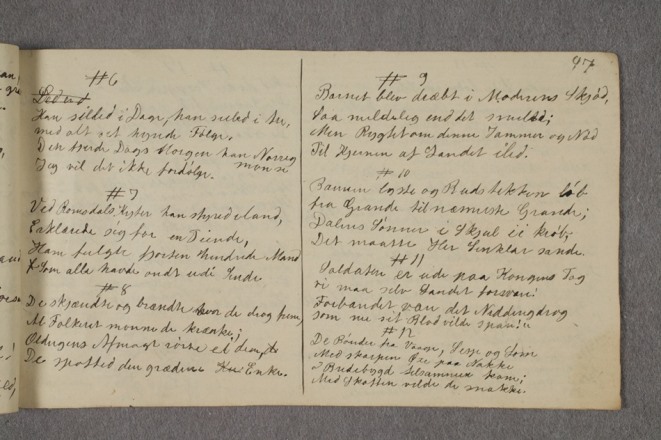 #6
Han seiled i Dage, han seiled i tre,
med alt sit hyrede Følge.
Den fjerde Dags Morgen han Norrig
monne se
Jeg vil det ikke fordølge.
#7
Ved Romsdals Kyster han styred iland,
Erklærede sig for en Fiende,
Ham fulgte fjorten Hundrede Mand
Som alle havde ondt udi Sinde
#8
De skjændte og brændte hvor de drog frem,
Al Folket monne de krænke;
Oldingens Afmagt rørte ei dem,
De spotted den grædene Enke.
97
# 9
Barnet blev dræbt i Moderens Skjød,
Saa mildelig end det smiled;
Men Rygtet om denne Jammer og Nød
Til Kjernen af Landet iled.
#10
Baunen lyste og Budstikken løb
fra Grande til nærmeste Grande;
Dalens Sønner i Skjul ei krøb;
Det maatte Her Sinklar sande.
#11
Soldaten er ude paa Kongens Tog
vi maa selv Landet forsvare
Forbandet vær det Niddingdrog
som nu sit Blod vilde spare
#12
De Bønder fra Vaage, Lesje og Lom
Med skarpen Øxe paa Nakke
I Bredebygd tilsammen kom;
Med Skotten vilde de snakke.